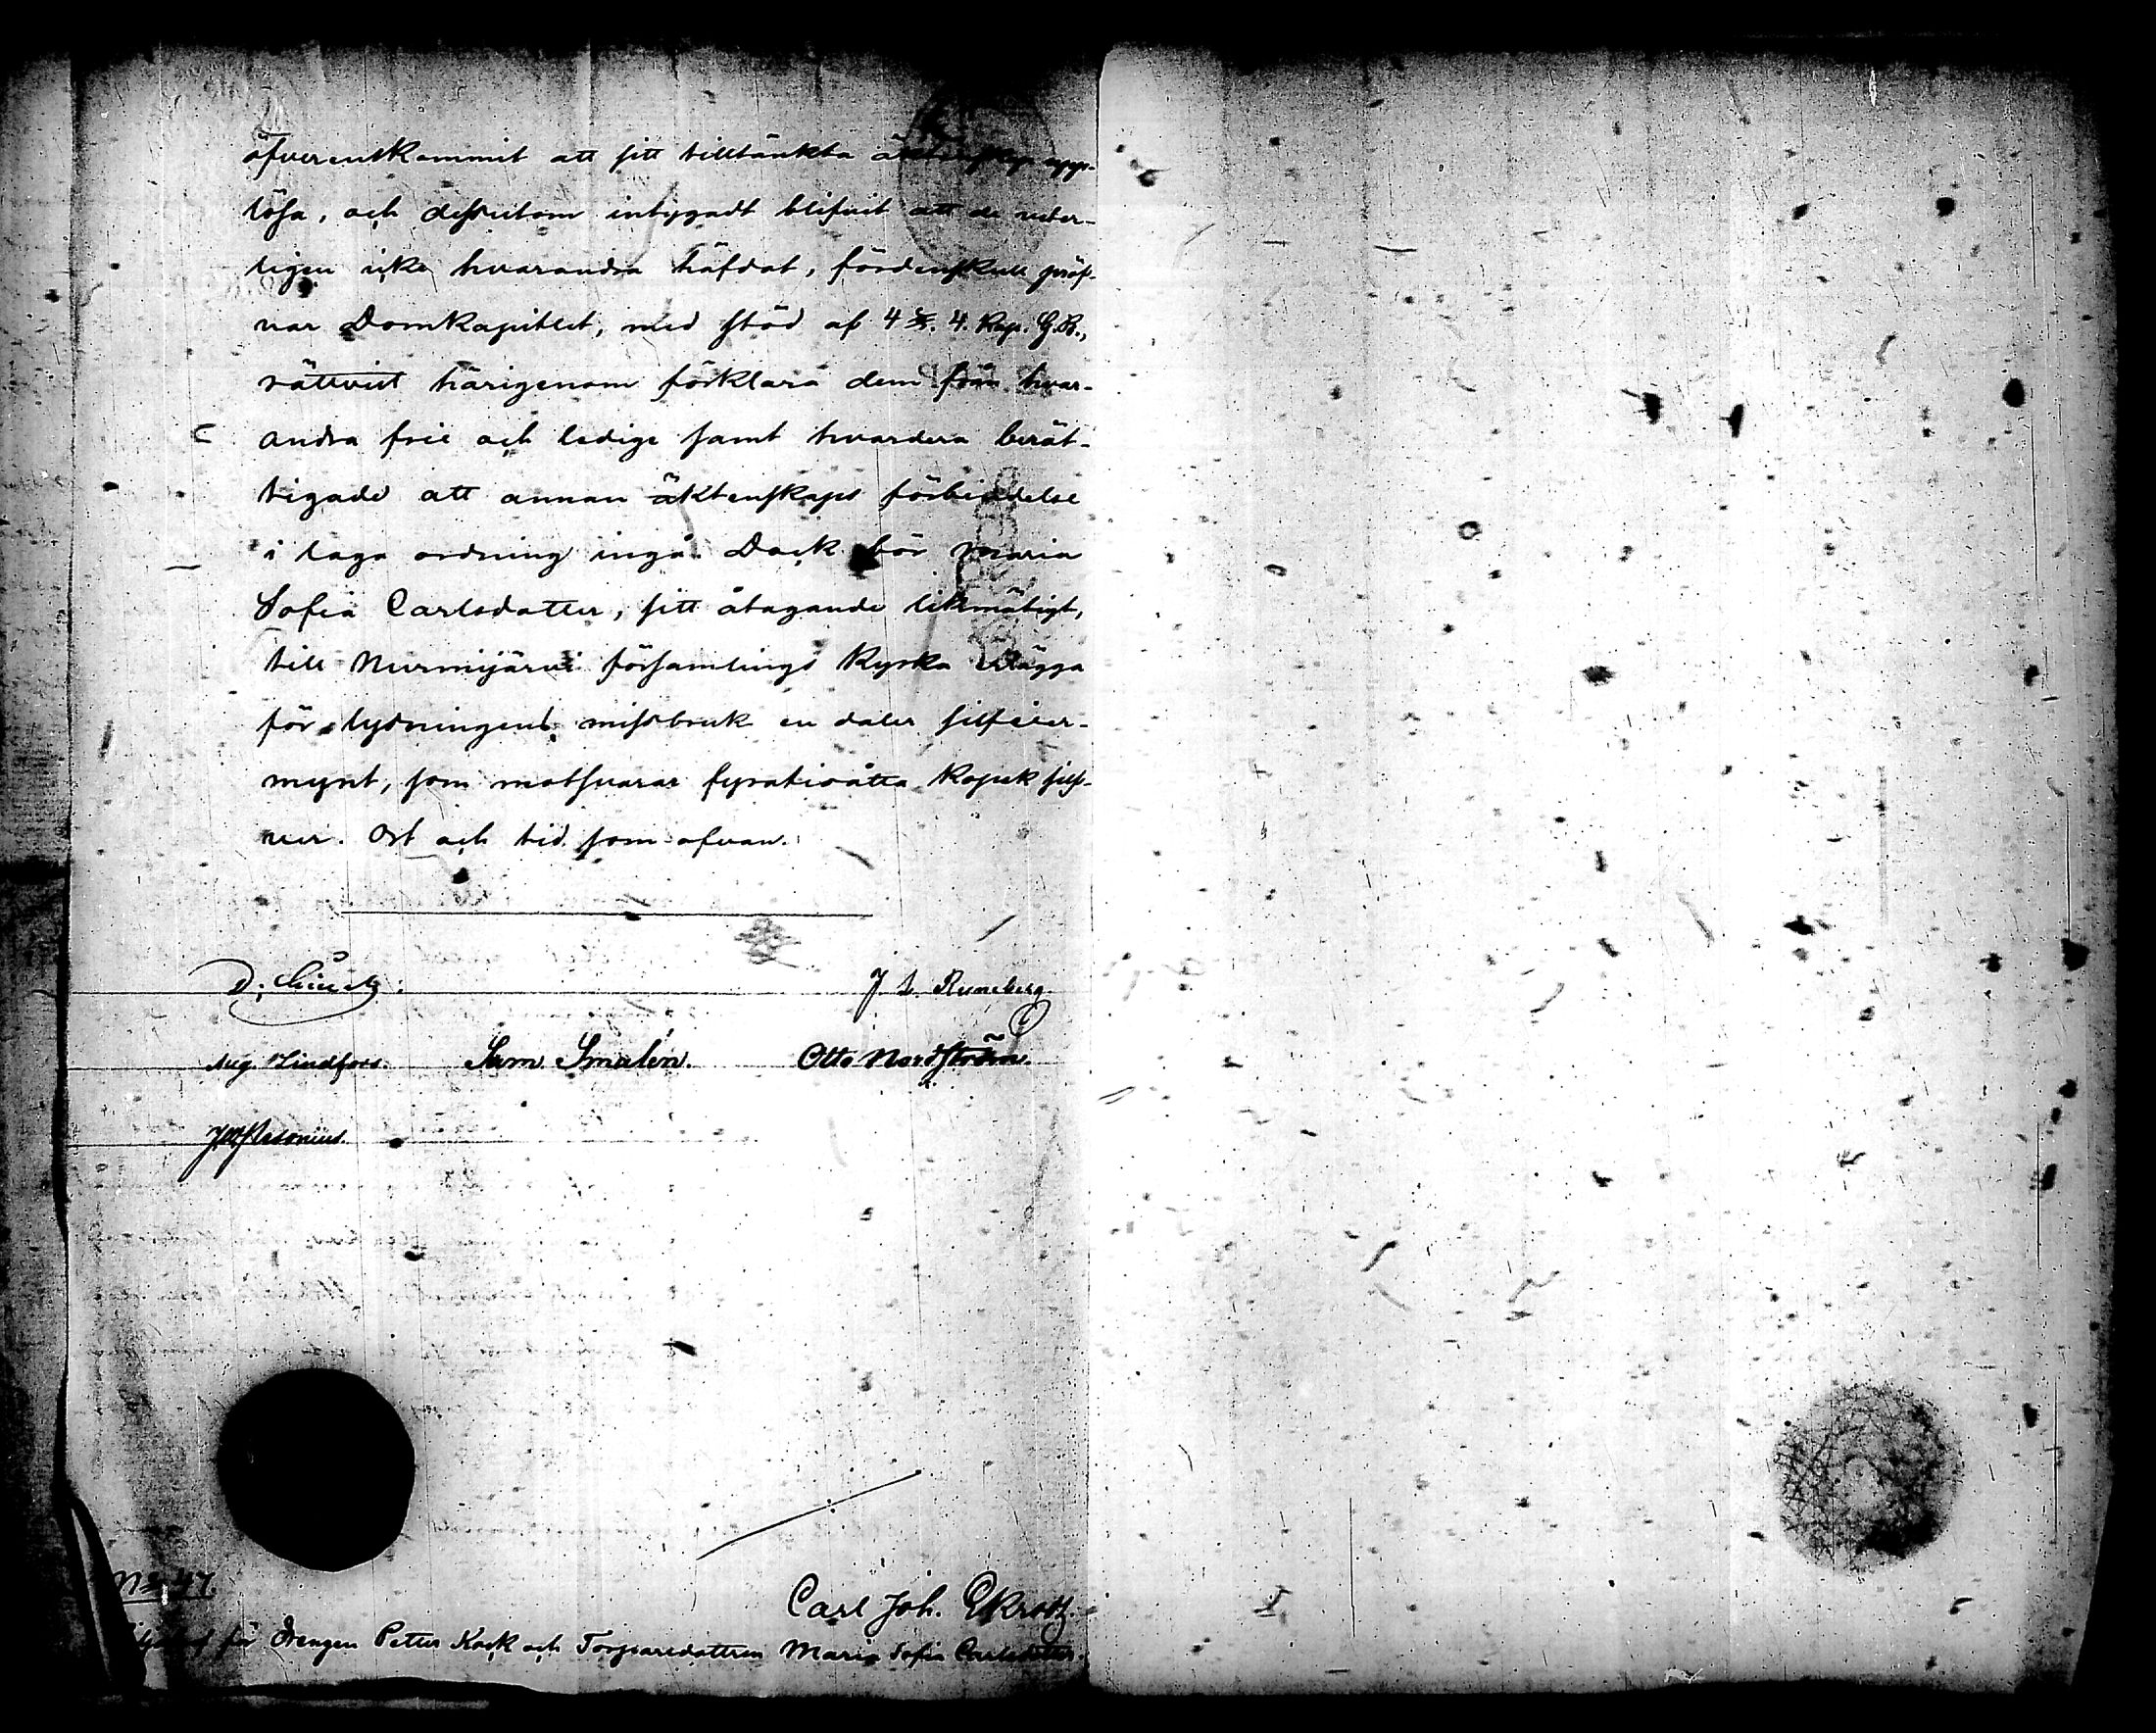 öfverenskommit att sitt tilltänkta äktenskap upp-
lösa, och dessutom intygadt blifvit att de veter-
ligen icke hvarandra häfdat, fördenskull pröf-
var Domkapitlet, med stöd af 4 §. 4. Kap. G.B.,
rättvist härigenom förklara dem från hvar-
andra frie och ledige samt hvardera berät-
tigade att annan äktenskaps förbindelse
i laga ordning ingå. Dock bör Maria
Sofia Carlsdotter, sitt åtagande likmätigt,
till Nurmijärvi församlings Kyrka erlägga
för lysningens missbruk en daler silfver-
mynt, som motsvarar fyratioåtta Kopek silf-
ver. Ort och tid som ofvan.
J. L. Runeberg.
Aug. Lindfors. Sam. Smalén. Otto Nordström.
No 47.
Carl Joh. Ekroth.
för Drengen Petter Kock och Torparedottren Maria Sofia Carlsdotter.